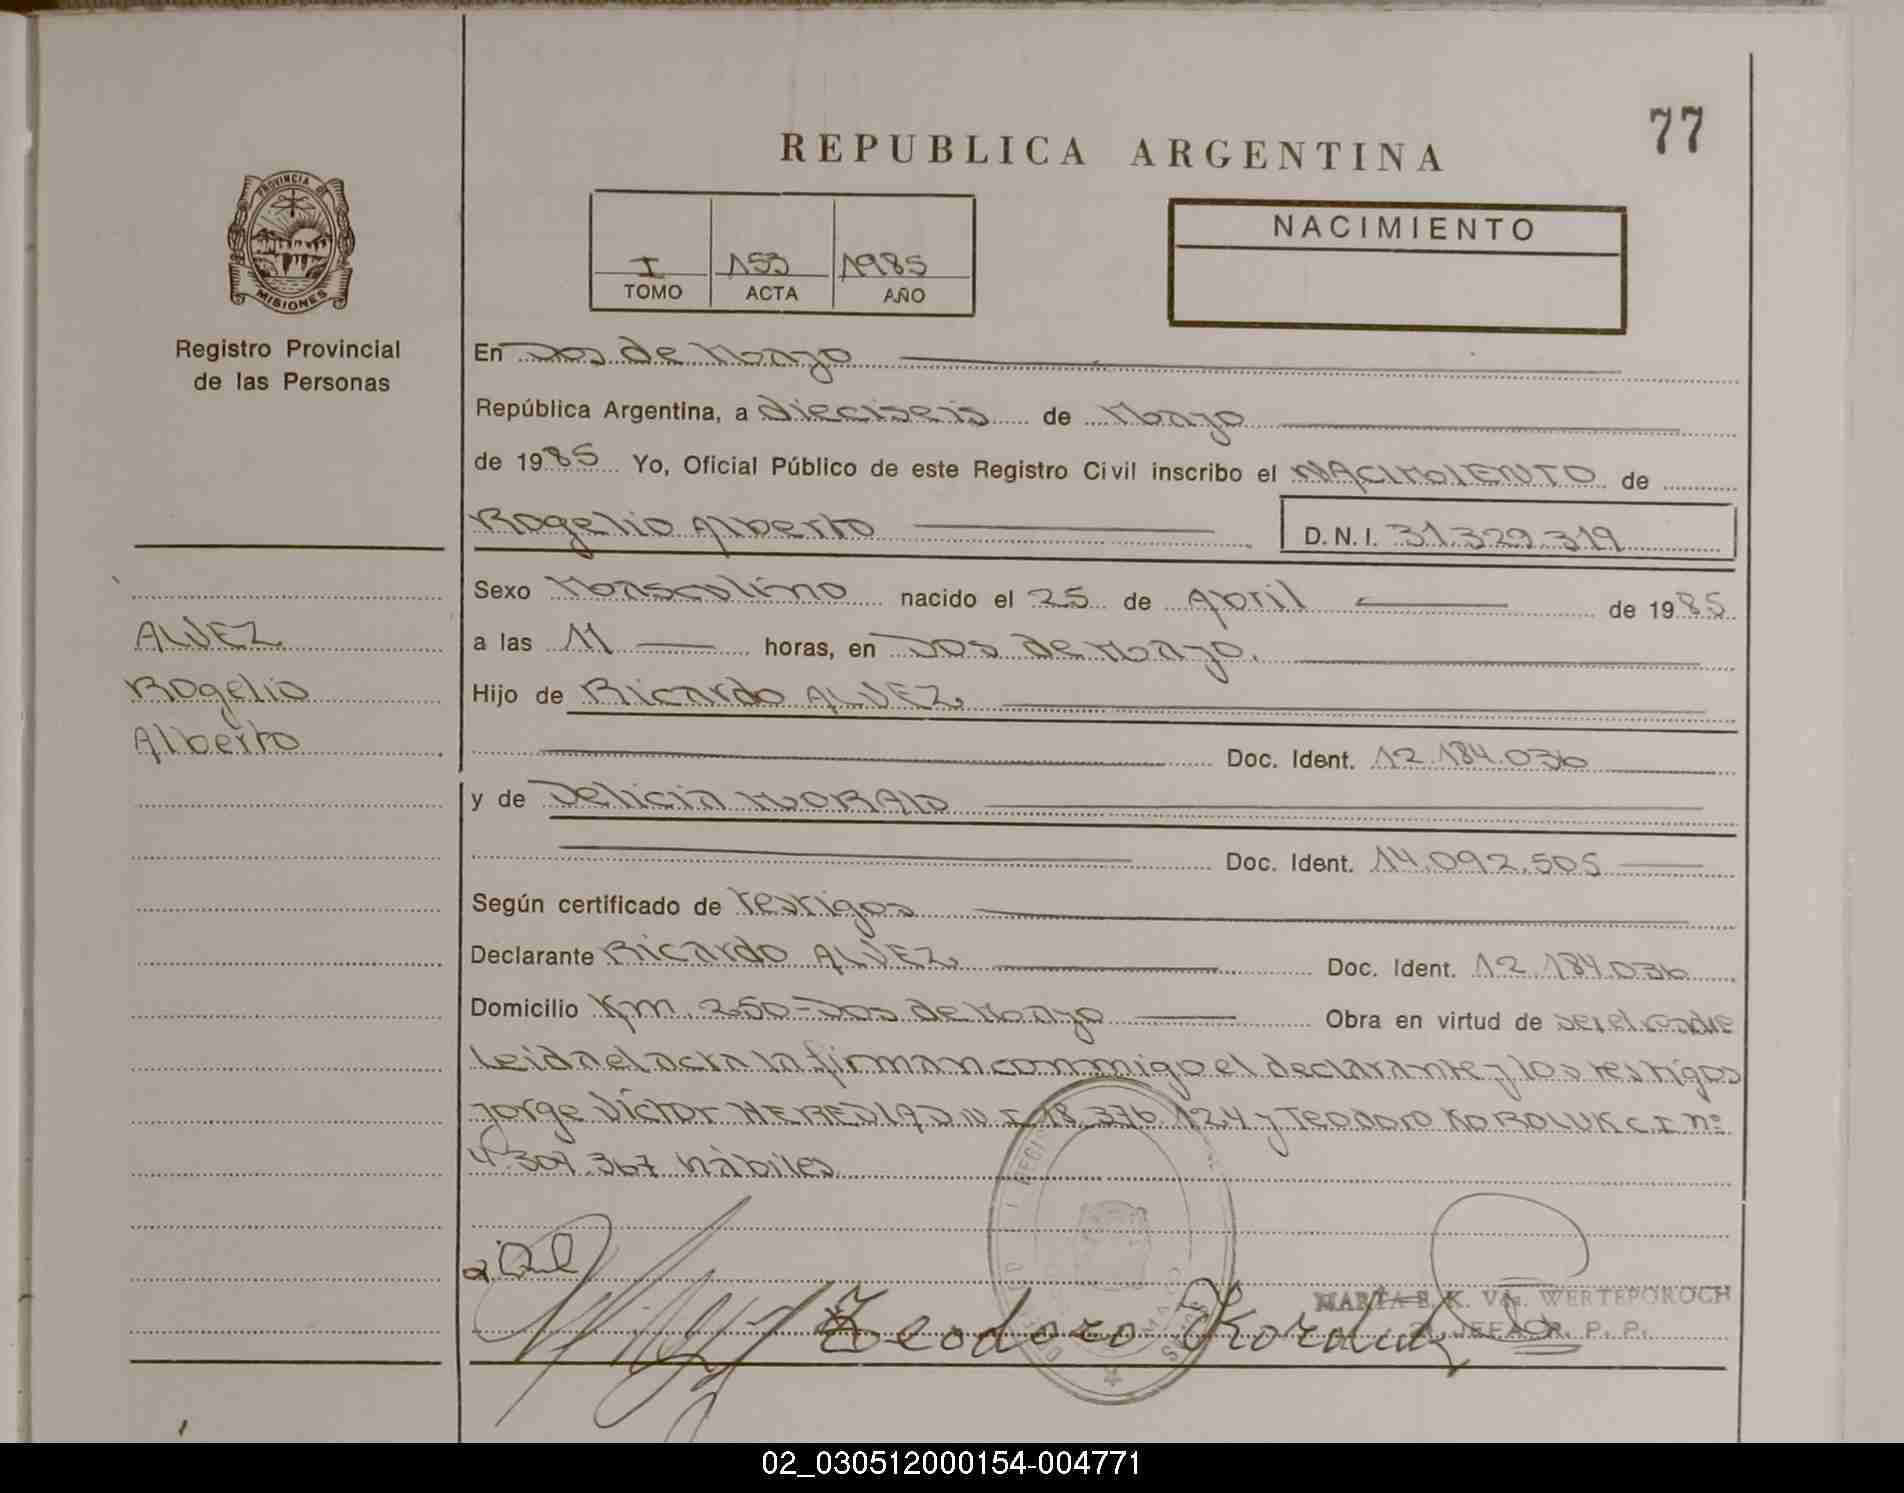 77
REPUBLICA ARGENTINA
PROVINCIA DE
MISIONES
Registro Provincial
de las Personas
I 153 1985
TOMO ACTA AÑO
NACIMIENTO
En Dos de Mayo
República Argentina, a dieciseis de Mayo
de 1985 Yo, Oficial Público de este Registro Civil inscribo el NACIMIENTO de
Rogelio Alberto D.N.I. 31.329.319
Sexo Masculino nacido el 25 de Abril de 1985
a las 11 horas, en Dos de Mayo.
Hijo de Ricardo ALVEZ.
Doc. Ident. 12.184.036
y de Delicia MORAIS
Doc. Ident. 14.092.505
Según certificado de testigos
Declarante Ricardo ALVEZ. Doc. Ident. 12.184.036
Domicilio Km. 250-Dos de Mayo Obra en virtud de ser el padre
Leida el acta la firman conmigo el declarante y los testigos
Jorge Víctor HEREDIA D.N.I. 18.376.124 y Teodoro KOROLUK C.I. nº
4.307.367 hábiles
ALVEZ
Rogelio
Alberto
Teodoro Koroluk
WERTEPOROCH
JEFA R. P. P.
02_030512000154-004771